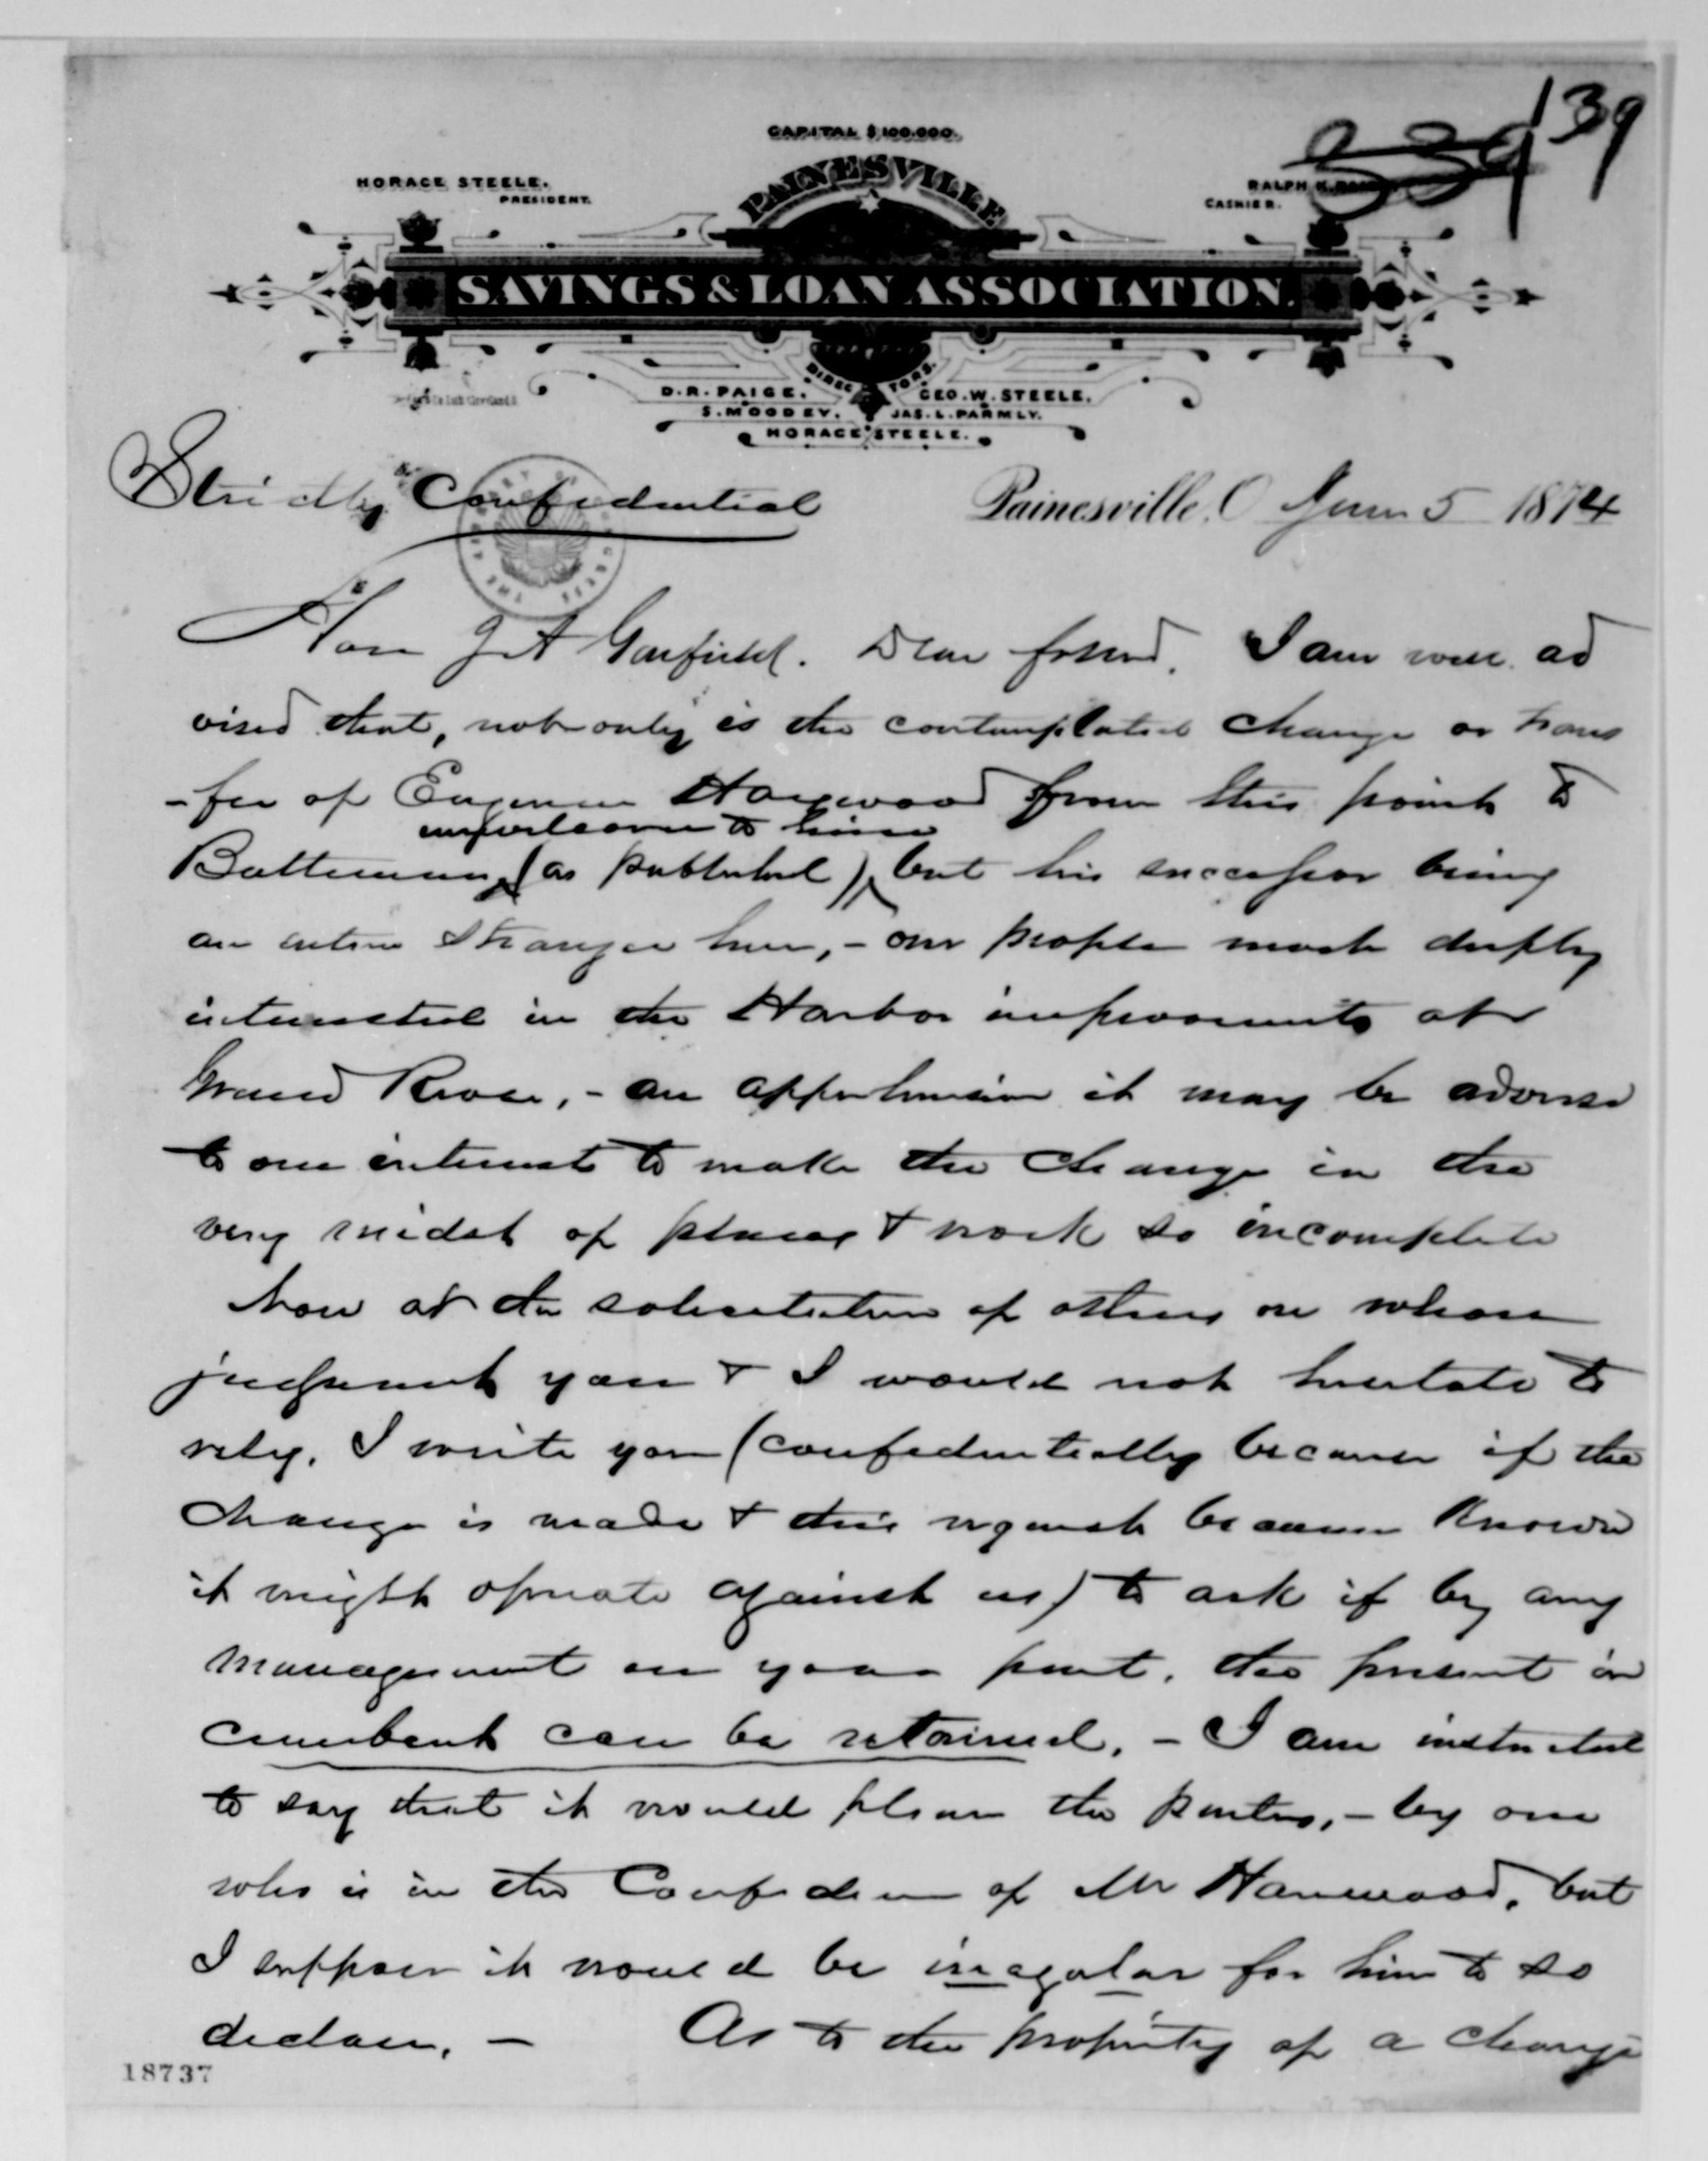 139
CAPITAL $100.000.
HORACE STEELE.
PRESIDENT.
RALPH K.
CASHIER.
PAINESVILLE
SAVINGS & LOAN ASSOCIATION.
DIRECTORS.
D.R. PAIGE. GEO. W. STEELE.
S. MOODEY. JAS. L. PARMLY.
HORACE STEELE.
Strictly Confidential
Painesville, O June 5 1874
Hon J A Garfield. Dear friend. I am well ad
vised that, not only is the contemplated change or trans
-fer of Engineer Harwood from this point to
unwelcome to him
Baltimore (as published), but his successor being
an entire stranger here, - our people most deeply
interested in the Harbor improvements at
Grand River, - an apprehension it may be adverse
to our interests to make the change in the
very midst of plans & work so incomplete
Now at the solicitation of others on whose
judgment you & I would not hesitate to
rely, I write you (confidentially because if the
change is made & this request became known
it might operate against us) to ask if by any
management on your part, the present in
cumbent can be retained. - I am instructed
to say that it would please the parties, - by one
who is in the Confidence of Mr Harwood, but
I suppose it would be iregular for him to so
declare. - As to the propriety of a change
18737